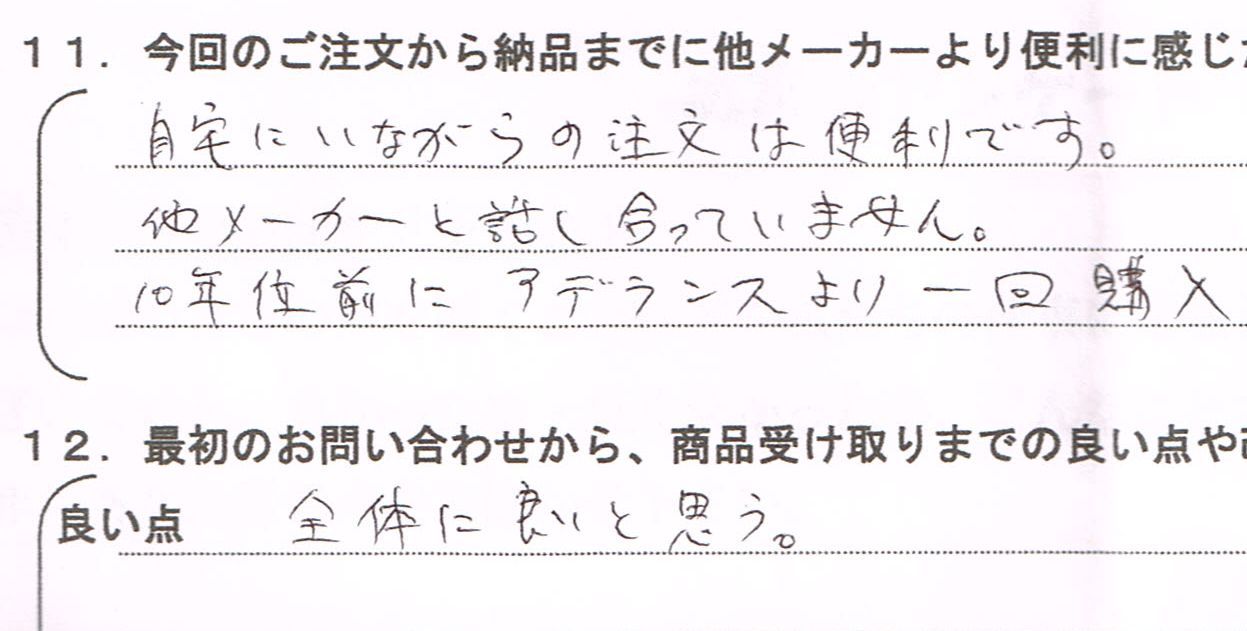 １１．今回のご注文から納品までに他メーカーより便利に感じ
自宅にいながらの注文は便利です。
他メーカーと話し合っていません。
10年位前にアデランスより一回購入
１２．最初のお問い合わせから、商品受け取りまでの良い点や
良い点 全体に良いと思う。